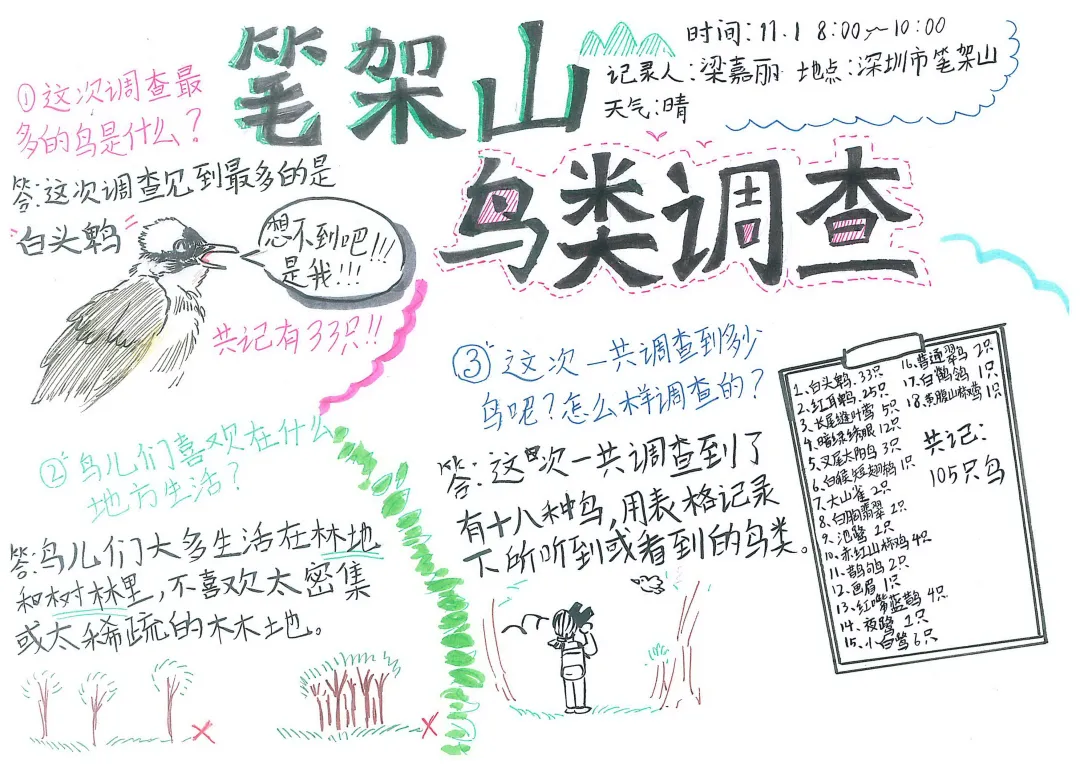 笔架山
鸟类调查
时间:11.1 8:00~10:00
记录人:梁嘉丽 地点:深圳市笔架山
天气:晴
①这次调查最
多的鸟是什么?
答:这次调查见到最多的是
"白头鹎"
想不到吧!!!
是我!!!
共记有33只!!
②鸟儿们喜欢在什么
地方生活?
答:鸟儿们大多生活在林地
和树林里,不喜欢太密集
或太稀疏的林地。
③这次一共调查到多少
鸟吧?怎么样调查的?
答:这次一共调查到了
有十八种鸟,用表格记录
下所听到或看到的鸟类。
1、白头鹎.33只
2、红耳鹎.25只
3、长尾缝叶莺 5只
4、暗绿绣眼 12只
5、叉尾太阳鸟 3只
6、白喉短翅鸫 1只
7、大山雀 2只
8、白胸翡翠 2只
9、池鹭 2只
10、赤红山椒鸟 4只
11、鹊鸲 2只
12、画眉 1只
13、红嘴蓝鹊 4只
14、夜鹭 2只
15、小白鹭 6只
16、普通翠鸟 2只
17、白鹡鸰 1只
18、黑腹山椒莺 1只
共记:
105只鸟